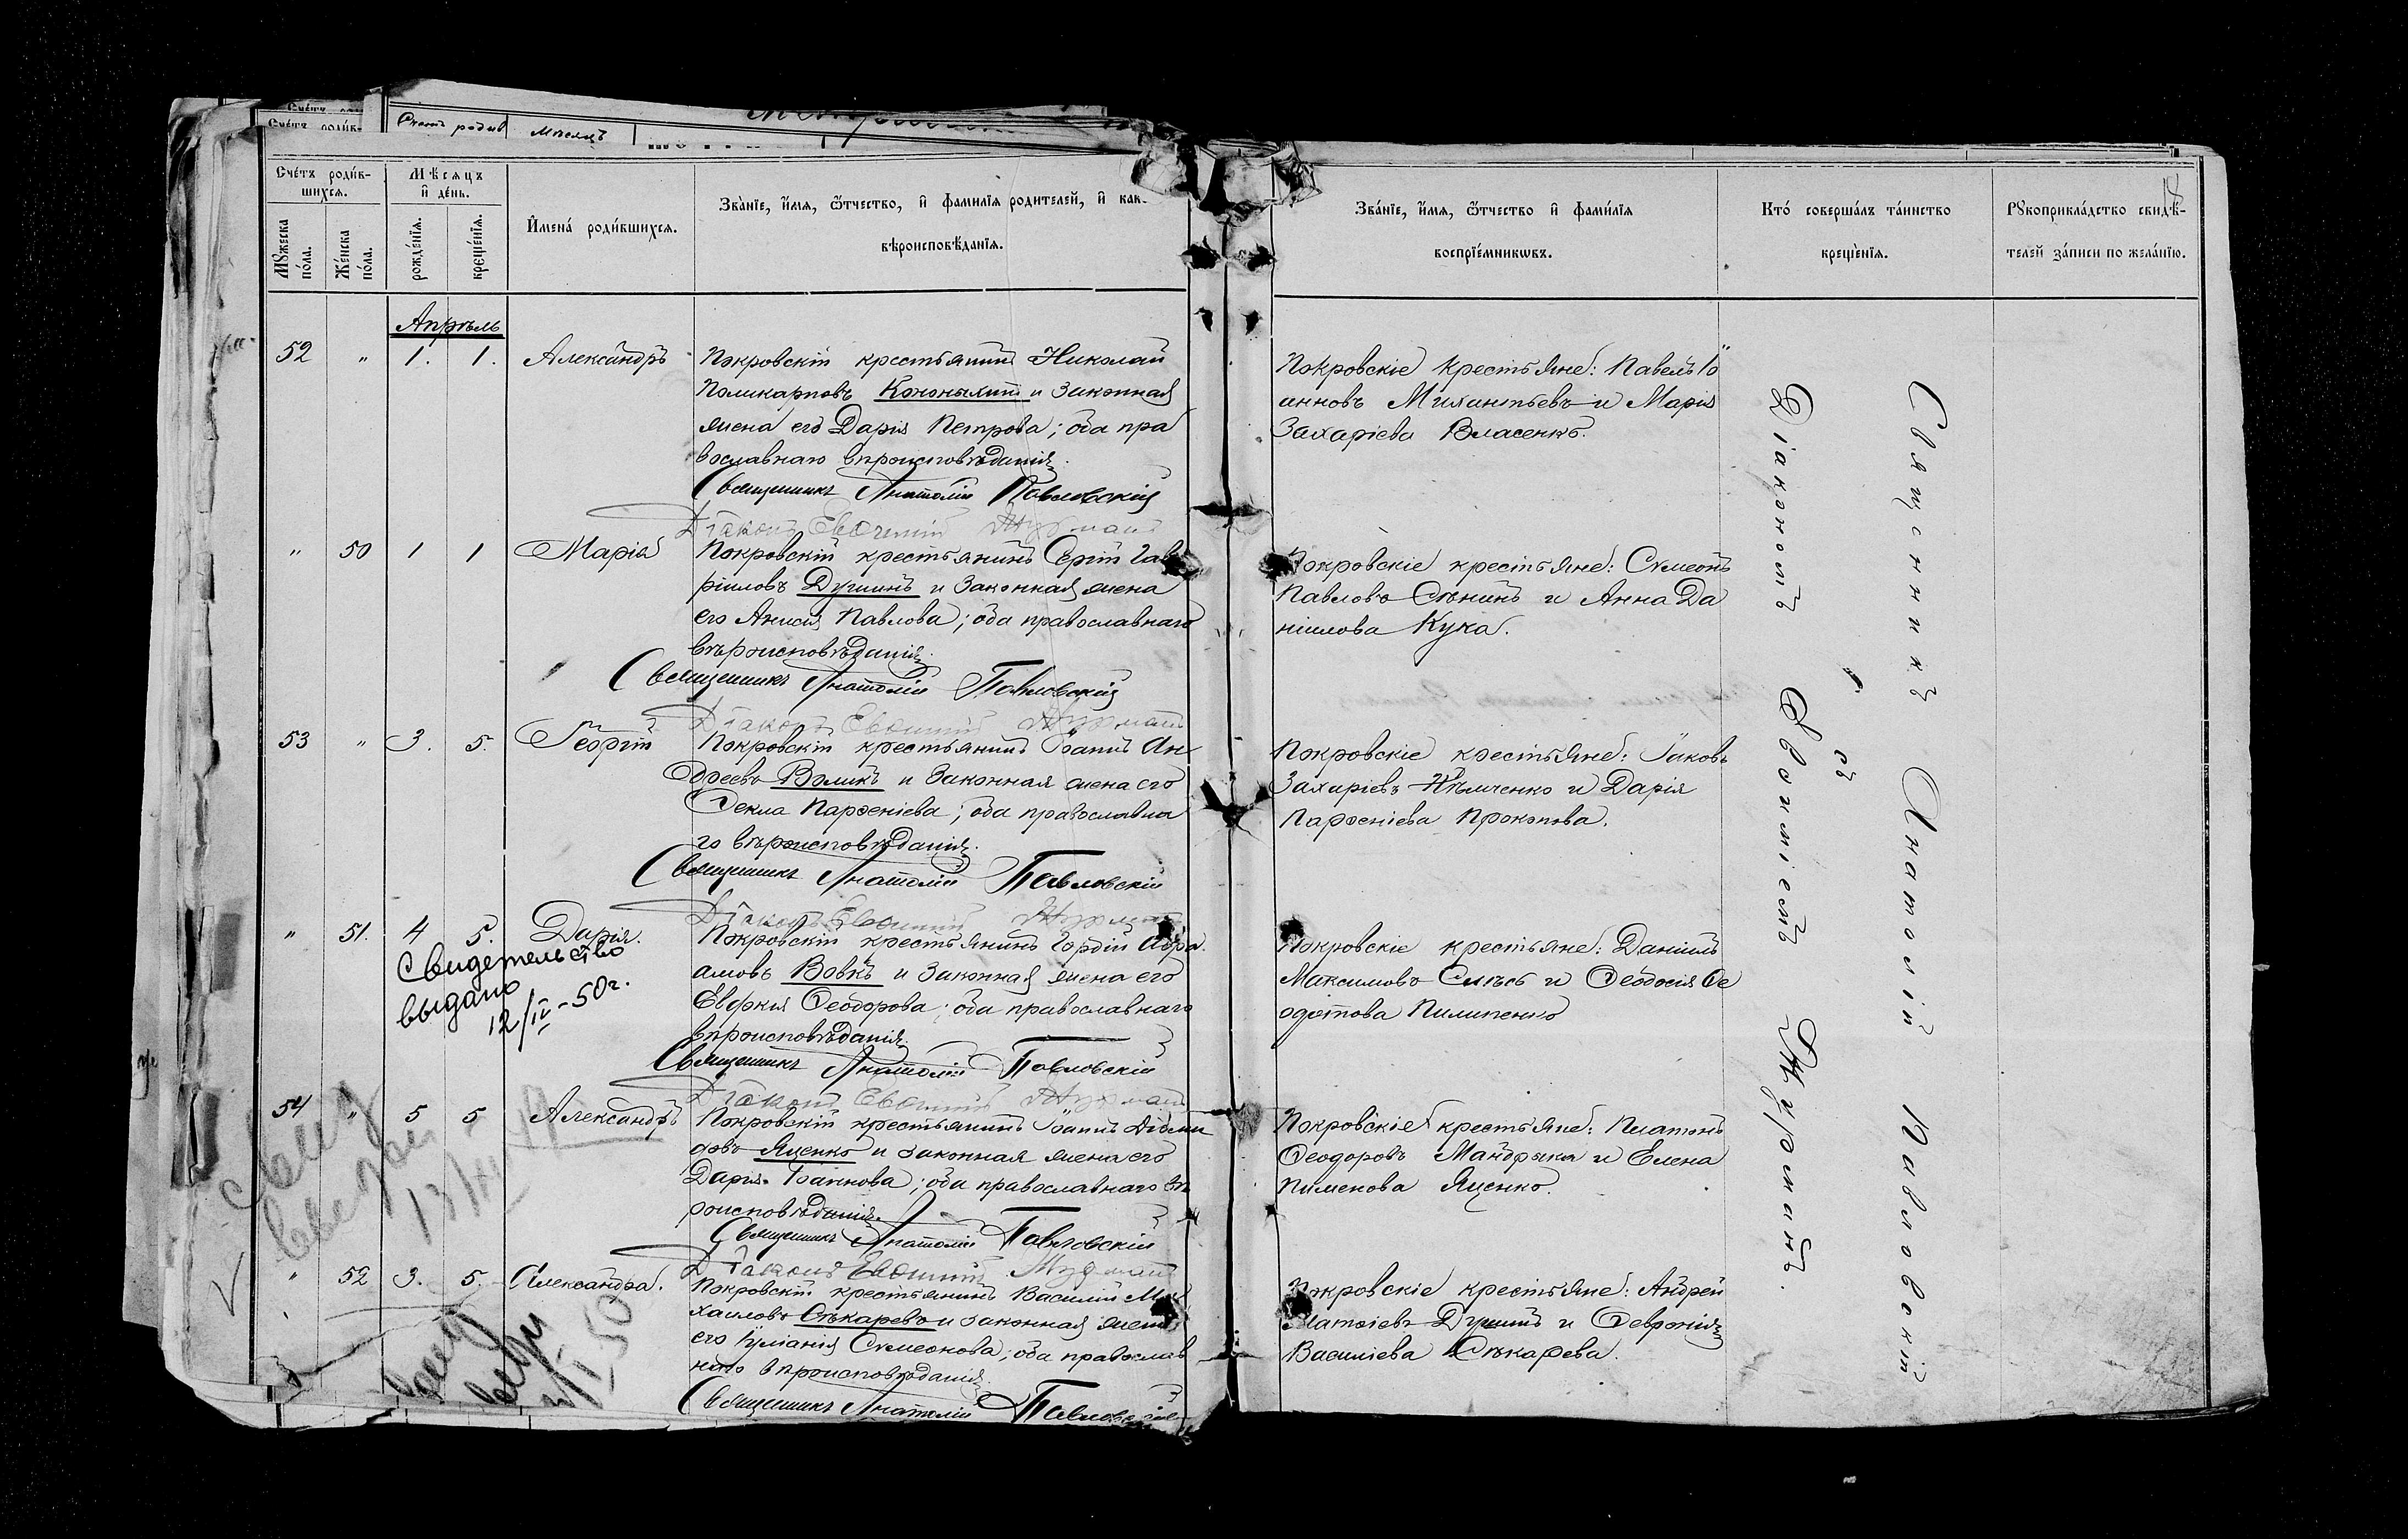 Счетъ родив
Мѣсяцъ
Счéтъ роди́в-
шихсѧ.
Мѣсѧцъ
и҆ де́нь.
И҆мена̀ роди́вшихсѧ.
Зва́нїе, и҆́мѧ, ѻ҆́тчество, и҆ фами́лїѧ родителей, и҆ как-
вѣроисповѣ́данїѧ.
Мꙋ́жеска
по́ла.
Же́нска
по́ла.
рожде́нїѧ.
креще́нїѧ.
Зва́нїе, и҆́мѧ, ѻ҆́тчество и҆ фами́лїѧ
воспрїе́мникѡвъ.
Кто́ соверша́лъ та́инство
креще́нїѧ.
Рꙋкоприкла́дство свидѣ́-
телей за́писи по жела́нїю.
Апрѣль
52 " 1. 1. Александръ
Покровскій крестьянинъ Николай
Поликарповъ Кононыхинъ и законная
жена его Дарія Петрова; оба пра
вославнаго вѣроисповѣданія.
Священникъ Анатолій Павловскій
Діаконъ Евѳимій Журманъ
Покровскіе крестьяне: Павелъ Іо
анновъ Михантьевъ и Марія
Захаріева Власенко.
" 50 1 1 Марія
Покровскій крестьянинъ Сергій Гав
ріиловъ Душинъ и законная жена
его Анисія Павлова; оба православнаго
вѣроисповѣданія.
Священникъ Анатолій Павловскій
Діаконъ Евѳимій Журманъ
Покровскіе крестьяне: Сѵмеонъ
Павловъ Сѣнинъ и Анна Да
ніилова Кука.
53 " 3. 5. Георгій
Покровскій крестьянинъ Іоаннъ Ан
дреевъ Воликъ и законная жена его
Ѳекла Парѳеніева; оба православна
го вѣроисповѣданія.
Священникъ Анатолій Павловскій
Діаконъ Евѳимій Журманъ
Покровскіе крестьяне: Іаковъ
Захаріевъ Нѣмченко и Дарія
Парѳеніева Прокопова.
" 51. 4 5. Дарія.
Свидетельство
выдано
12/IV-50г.
Покровскій крестьянинъ Гордій Авра
амовъ Вовкъ и законная жена его
Евфимія Ѳеодорова; оба православнаго
вѣроисповѣданія.
Священникъ Анатолій Павловскій
Діаконъ Евѳимій Журманъ
Покровскіе крестьяне: Даніилъ
Максимовъ Смѣсь и Ѳеодосія Ѳе
одотова Пилипенко
54 " 5 5 Александръ
Свид
выдан
Покровскій крестьянинъ Іоаннъ Діоми
довъ Яценко и законная жена его
Дарія Іоаннова; оба православнаго вѣ
роисповѣданія.
Священникъ Анатолій Павловскій
Діаконъ Евѳимій Журманъ
Покровскіе крестьяне: Платонъ
Ѳеодоровъ Мандрыка и Елена
Пименова Яценко.
" 52 3. 5. Александра.
Покровскій крестьянинъ Василій Ми
хаиловъ Сѣкаревъ и законная жена
его Іуліанія Сѵмеонова; оба православ
наго вѣроисповѣданія.
Священникъ Анатолій Павловскій
Покровскіе крестьяне: Андрей
Матѳіевъ Душинъ и Ѳевронія
Василіева Сѣкарева.
Священникъ Анатолій Павловскій
съ
Діакономъ Евѳиміемъ Журманъ.